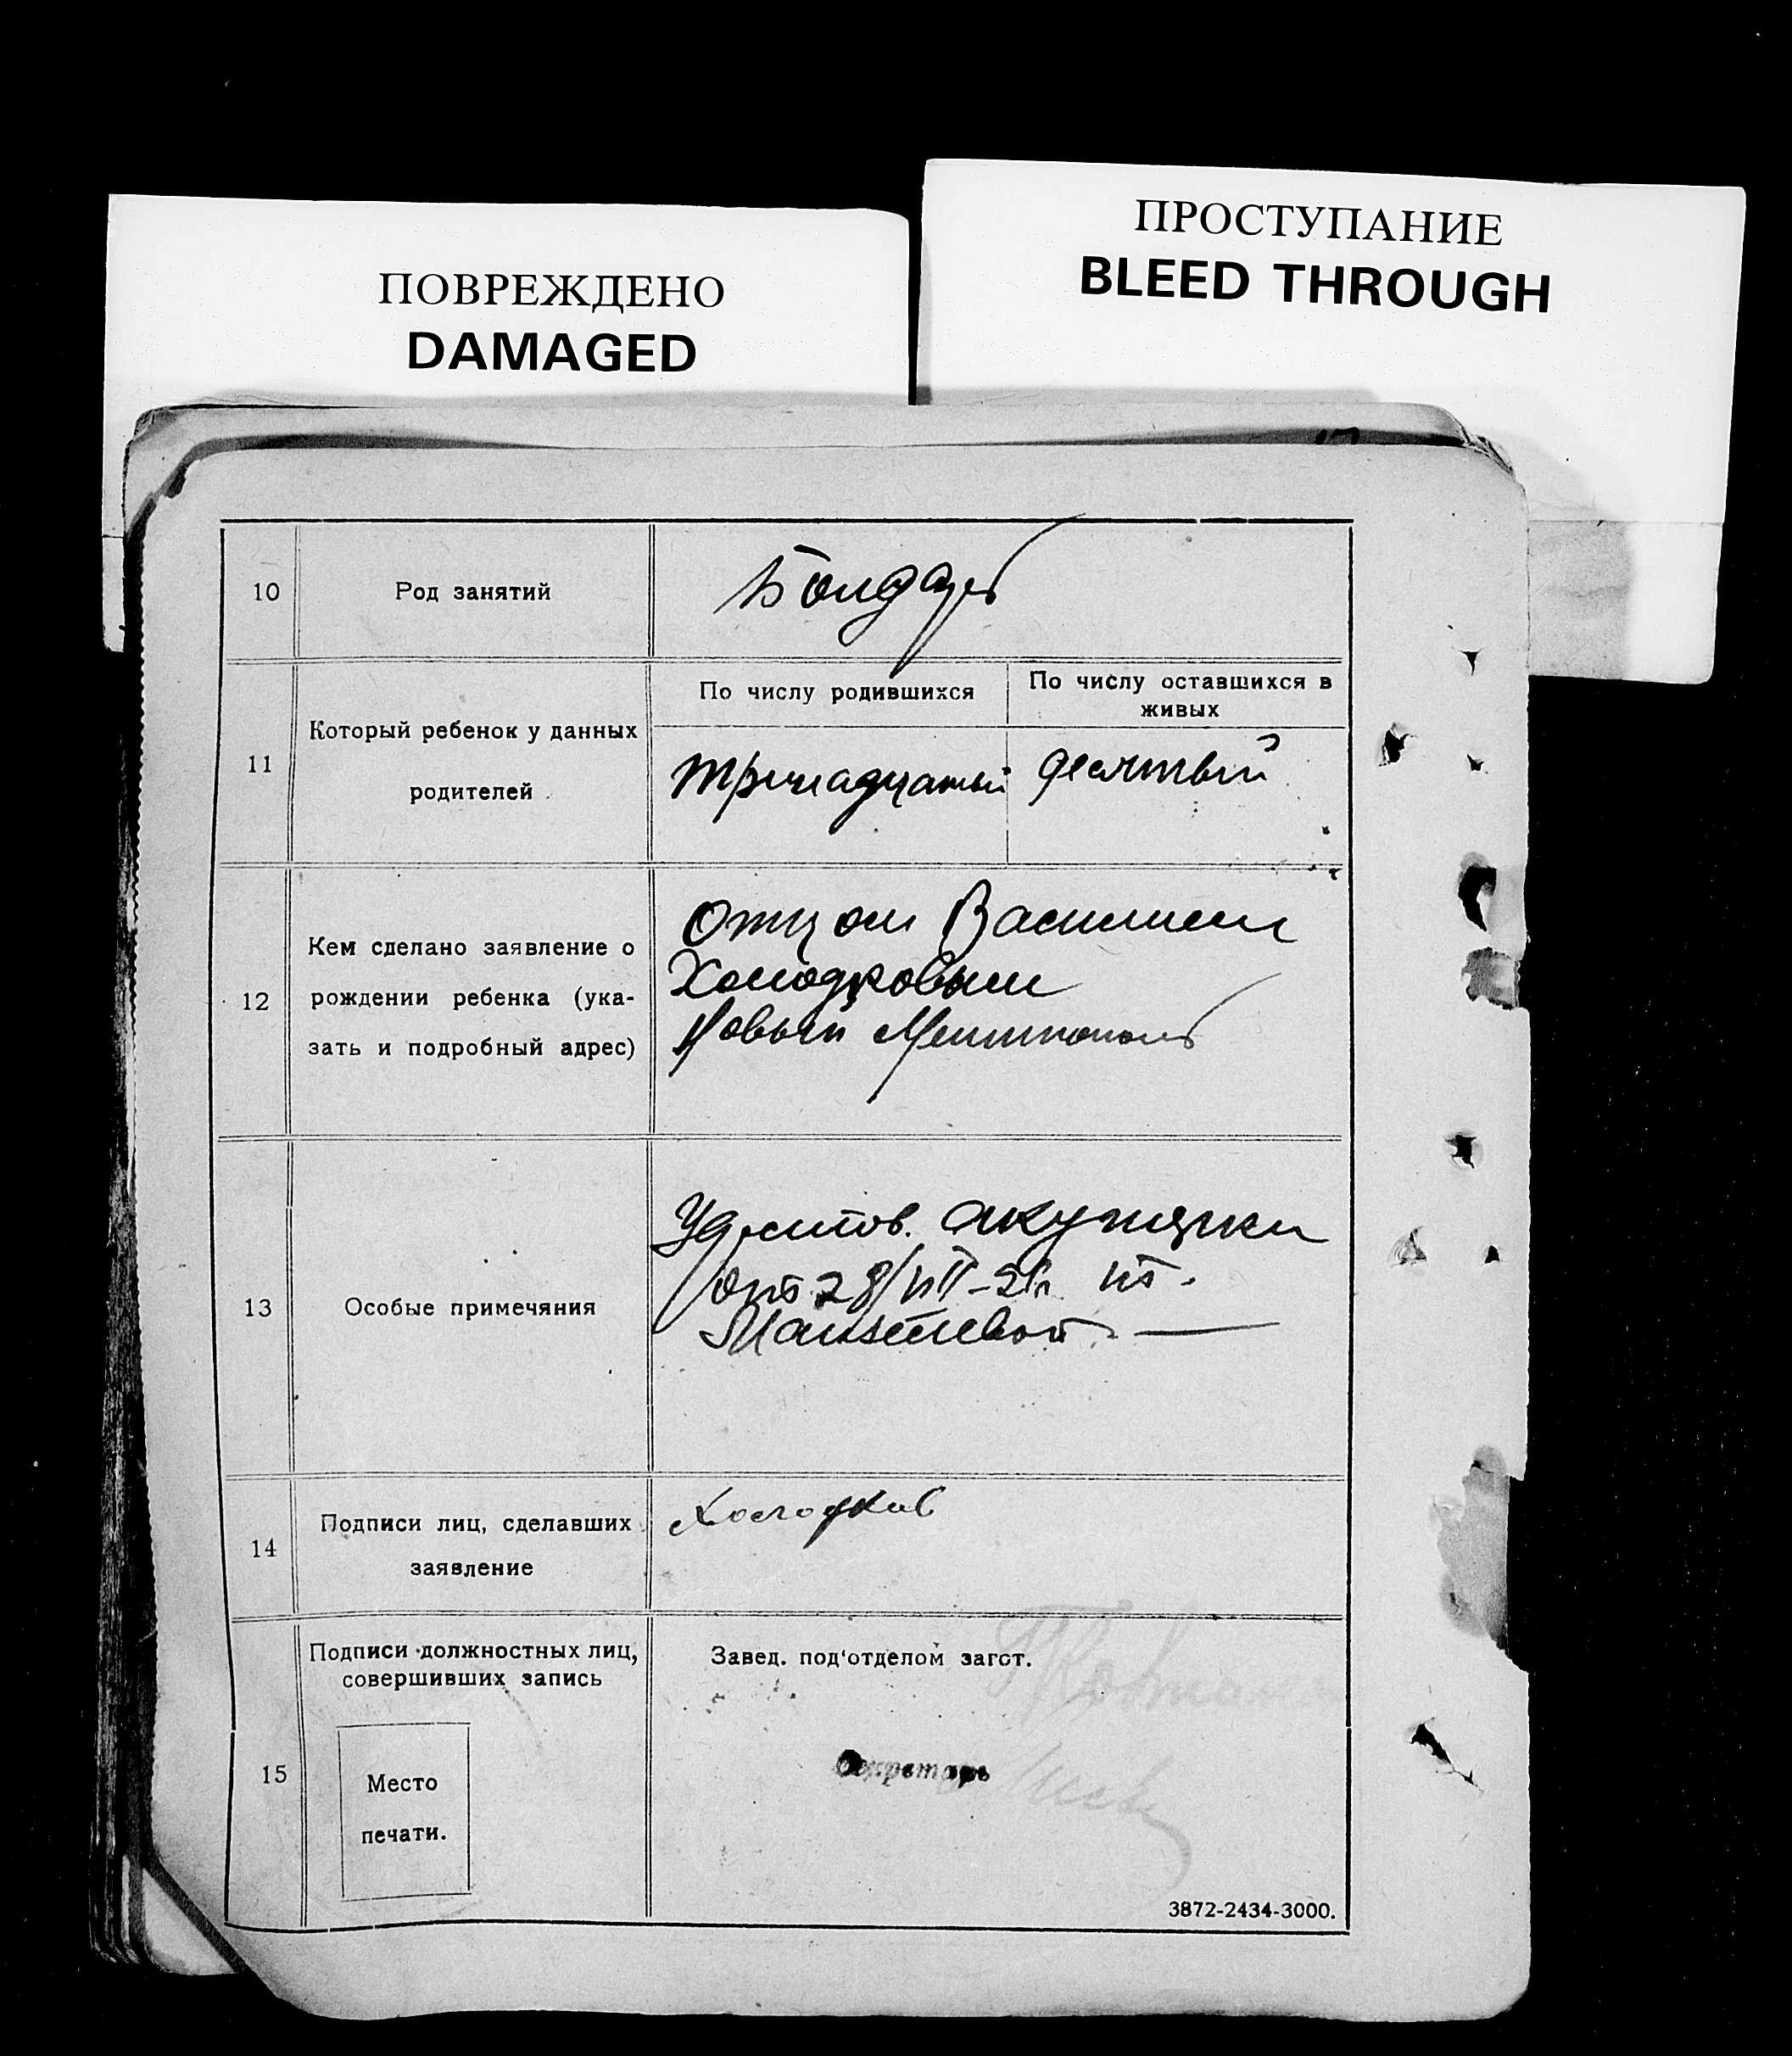 ПОВРЕЖДЕНО
DAMAGED
ПРОСТУПАНИЕ
BLEED THROUGH
10
Род занятий
Бондарь
11
Который ребенок у данных
родителей
По числу родившихся
По числу оставшихся в
живых
тринадцатый
десятый
12
Кем сделано заявление о
рождении ребенка (ука-
зать и подробный адрес)
Отцом Василием
Холодковым
Новый Мелитополь
13
Особые примечания
Удостов. акушерки
от 28/VII
14
Подписи лиц, сделавших
заявление
Холодков
15
Подписи должностных лиц,
совершивших запись
Место
печати.
Завед. под'отделом загст.
Секретарь
3872-2434-3000.